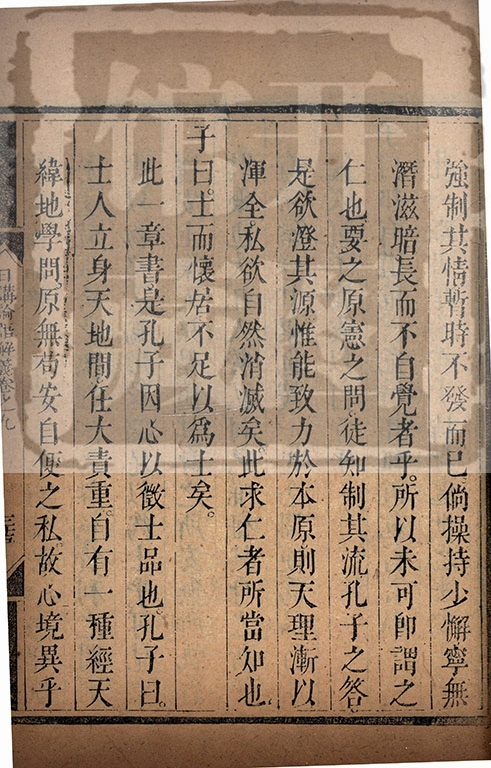 強制其情暫時不發而已倘操持少懈寧無
潛滋暗長而不自覺者乎。所以未可卽謂之
仁也要之原憲之問徒知制其流孔子之答。
是欲澄其源惟能致力於本原則天理漸以
渾全私欲自然消滅矣。此求仁者所當知也
子曰。士而懷居不足以爲士矣。
此一章書。是孔子因心以徵士品也。孔子曰。
士人立身天地間。任大責重。自有一種經天
緯地學問。原無苟安自便之私故心境異乎
日講論語解義卷之九